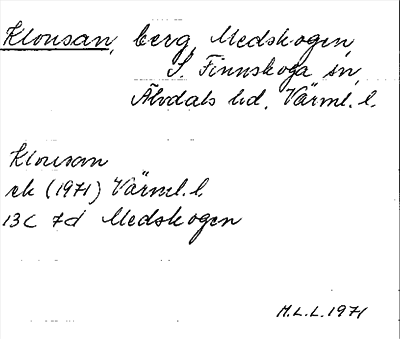 Klousan, berg, Medskogen,
S. Finnskoga sn,
Älvdals hd, Värml. l.
Klousan
ek (1971) Värml. l.
13C 7d Medskogen
M.L.L. 1971